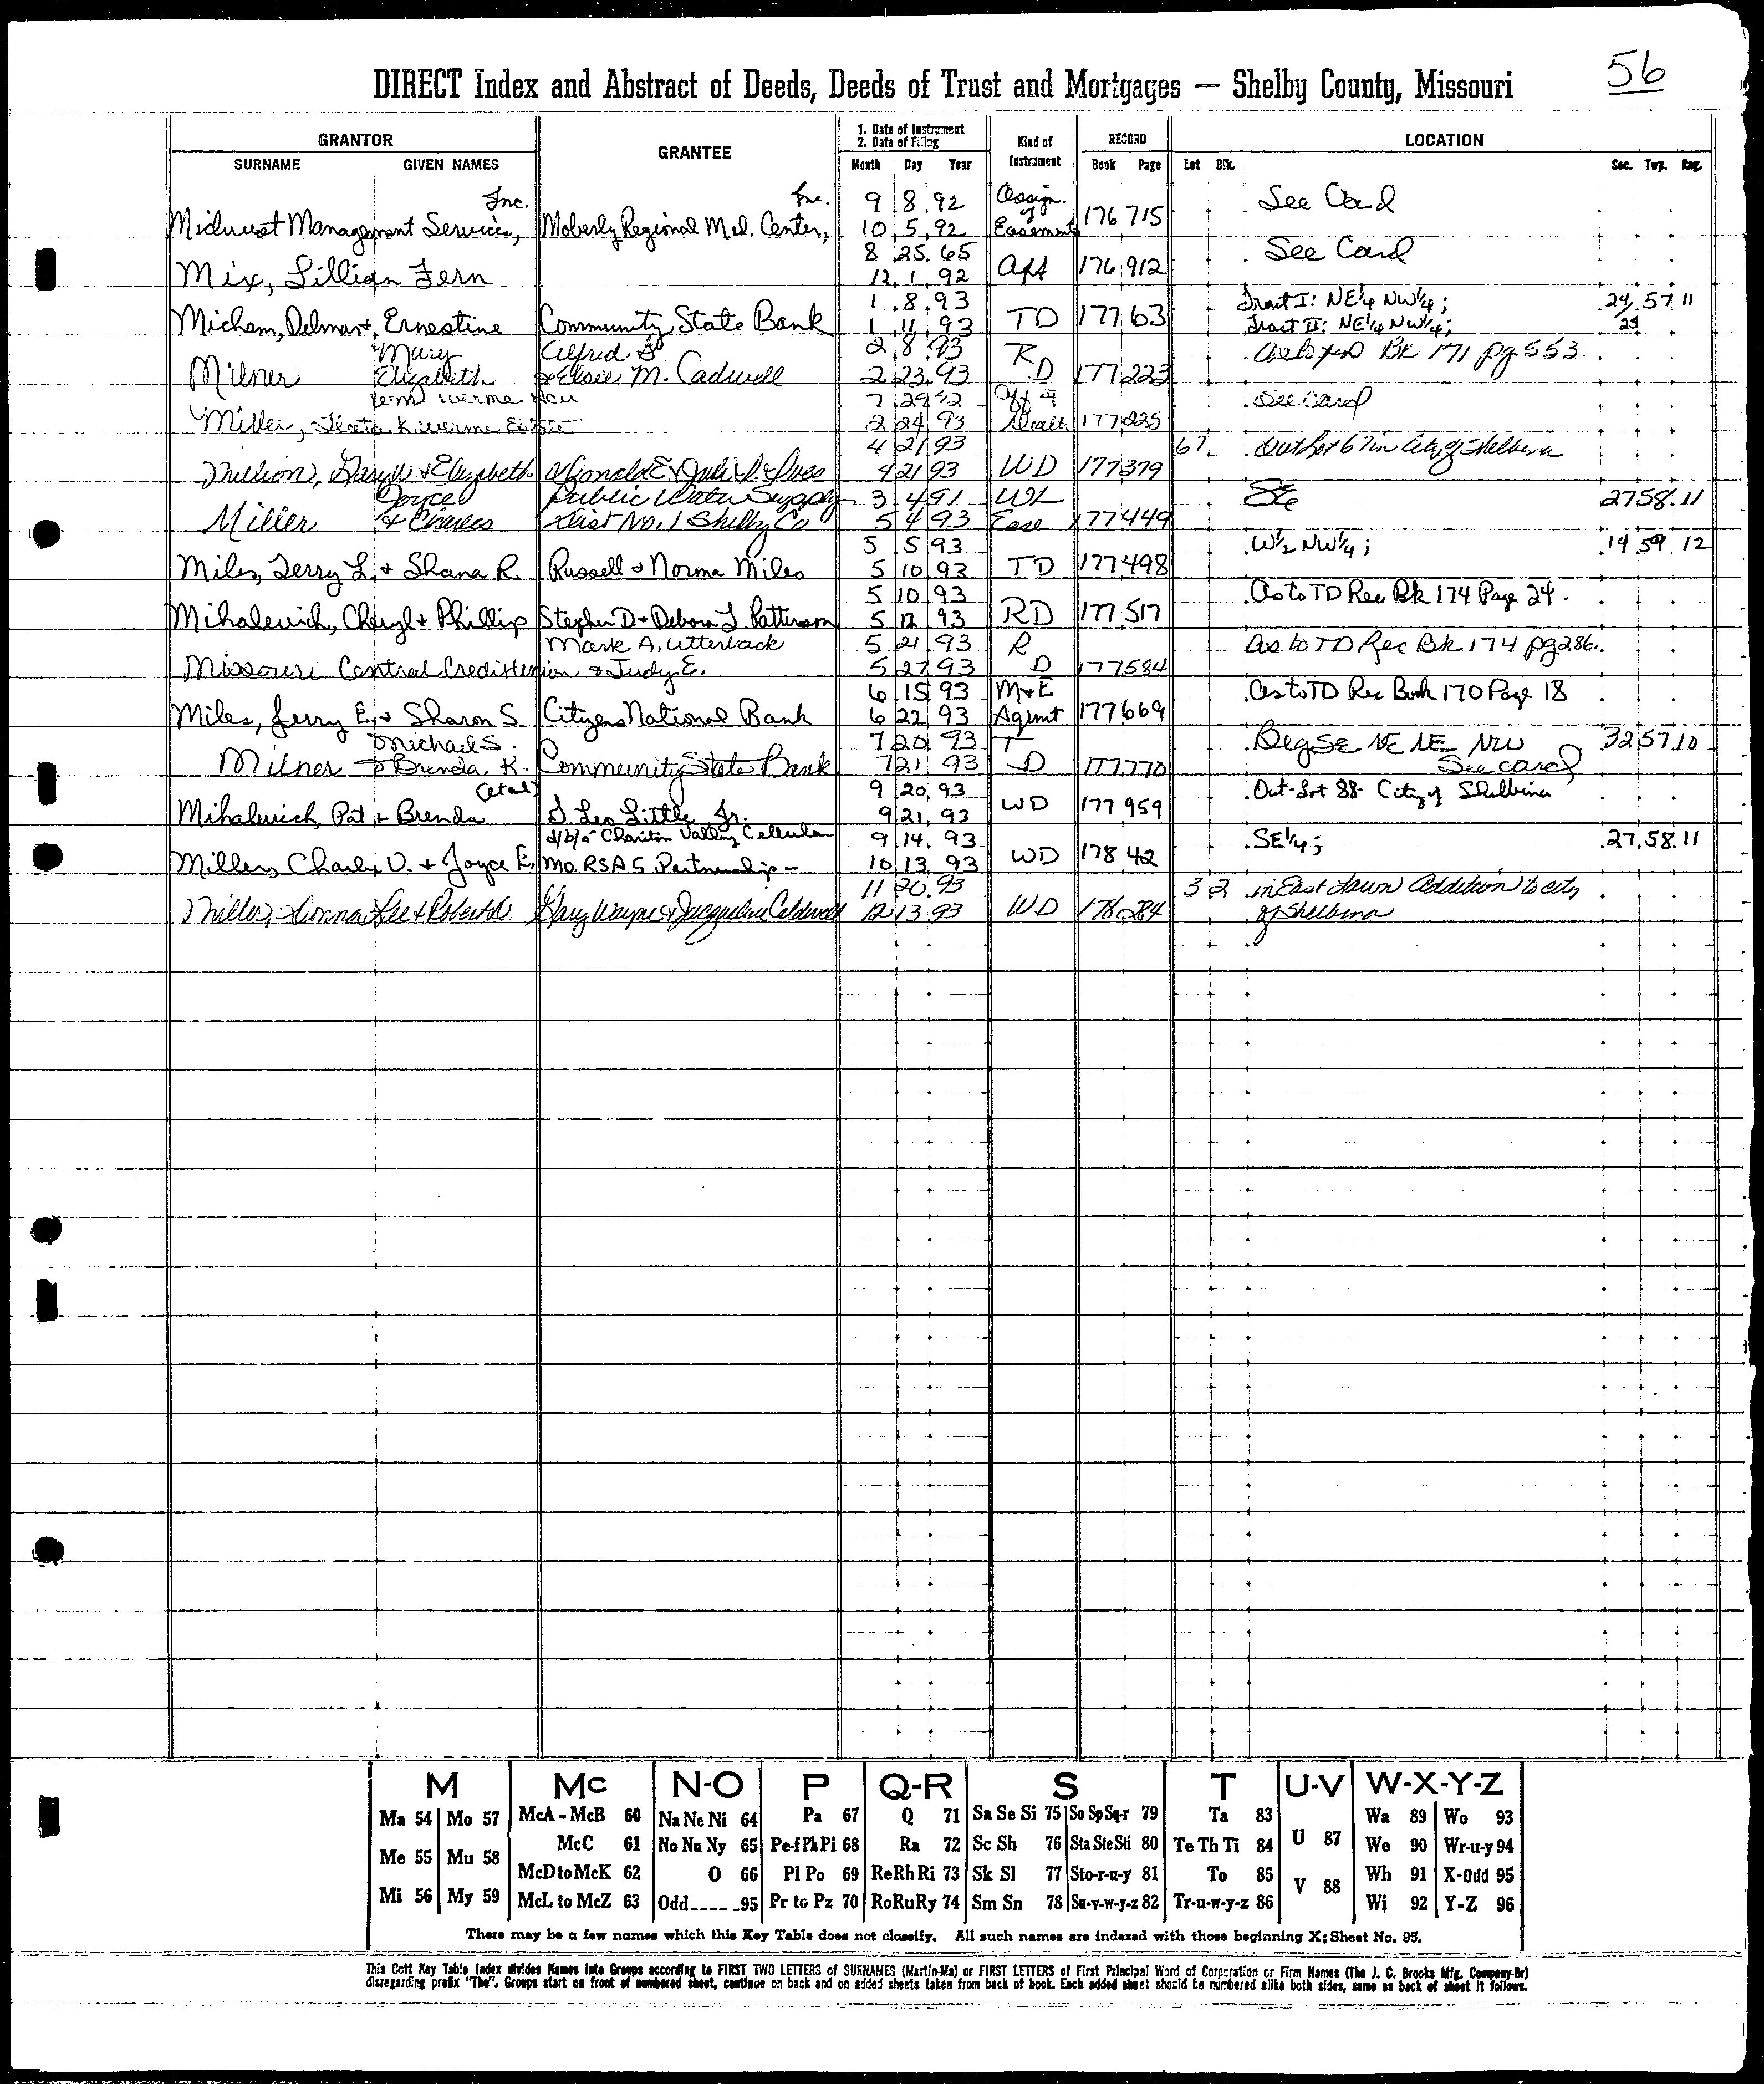 56
DIRECT Index and Abstract of Deeds, Deeds of Trust and Mortgages — Shelby County, Missouri
GRANTOR GRANTEE 1. Date of Instrument 2. Date of Filing Kind of Instrument RECORD LOCATION
SURNAME GIVEN NAMES Month Day Year Book Page Lot Blk. Sec. Twp. Rng.
Inc. Inc. 9 8 92 Assign. of See Card
Midwest Management Services, Moberly Regional Med. Center, 10 5 92 Easement 176 715
8 25 65 See Card
Mix, Lillian Fern 12 1 92 Aff 176 912
1 8 93 Tract I: NE1/4 NW1/4; 24 57 11
Micham, Delmar & Ernestine Community State Bank 1 11 93 TD 177 63 Tract II: NE1/4 NW1/4; 25
Mary Alfred 2 8 93 R Bk 171 pg 553
Milner Elizabeth & Elsie M. Cadwell 2 23 93 D 177 223
7 29 See Card
Miller, K Werme Estate 2 24 93 Death 177 225
4 21 93 67 Outlot 67 in City of Shelbina
Million, Gary W & Elizabeth Ronald E & Julie 4 21 93 WD 177 379
Joyce Public Water Supply 3 4 91 WL SE 27 58 11
Miller & Charles Dist No. 1 Shelby Co 5 4 93 Ease 177 449
5 5 93 W1/2 NW1/4; 14 59 12
Miles, Terry L. & Shana R. Russell & Norma Miles 5 10 93 TD 177 498
5 10 93 As to TD Rec Bk 174 Page 24
Mihalevich, Cheryl & Phillip Stephen D & Debora L Patterson 5 12 93 RD 177 517
Mark A. Utterback 5 21 93 R As to TD Rec Bk 174 pg 286
Missouri Central Credit Union & Judy E. 5 27 93 D 177 584
6 15 93 M&E As to TD Rec Book 170 Page 18
Miles, Jerry E. & Sharon S Citizens National Bank 6 22 93 Agmt 177 669
Michael S. 7 20 93 T Beg SE NE NE NW 32 57 10
Milner & Brenda K. Community State Bank 7 21 93 D 177 770 See card
(etal) 9 20 93 Out-Lot 88 City of Shelbina
Mihalevich, Pat & Brenda J. Leo Little Jr. 9 21 93 WD 177 959
d/b/a Chariton Valley Cellular 9 14 93 SE1/4; 27 58 11
Miller, Charles V. & Joyce E. MO. RSA 5 Partnership 10 13 93 WD 178 42
11 20 93 3 2 in East Lawn Addition to city
Miller, Donna Lee & Robert D. Gary Wayne & Jacqueline Caldwell 12 13 93 WD 178 284 of Shelbina
M Mc N-O P Q-R S T U-V W-X-Y-Z
Ma 54 Mo 57 McA - McB 60 Na Ne Ni 64 Pa 67 Q 71 Sa Se Si 75 So Sp Sq-r 79 Ta 83 Wa 89 Wo 93
McC 61 No Nu Ny 65 Pe-f Ph Pi 68 Ra 72 Sc Sh 76 Sta Ste Sti 80 Te Th Ti 84 U 87 We 90 Wr-u-y 94
Me 55 Mu 58 McD to McK 62 O 66 Pl Po 69 Re Rh Ri 73 Sk Sl 77 Sto-r-u-y 81 To 85 V 88 Wh 91 X-Odd 95
Mi 56 My 59 McL to McZ 63 Odd-----95 Pr to Pz 70 Ro Ru Ry 74 Sm Sn 78 Su-v-w-y-z 82 Tr-u-w-y-z 86 Wi 92 Y-Z 96
There may be a few names which this Key Table does not classify. All such names are indexed with those beginning X; Sheet No. 95.
This Cott Key Table Index divides Names into Groups according to FIRST TWO LETTERS of SURNAMES (Martin-Ma) or FIRST LETTERS of First Principal Word of Corporation or Firm Names (The J. C. Brooks Mfg. Company-Br)
disregarding prefix "The". Groups start on front of numbered sheet, continue on back and on added sheets taken from back of book. Each added sheet should be numbered alike both sides, same as back of sheet it follows.